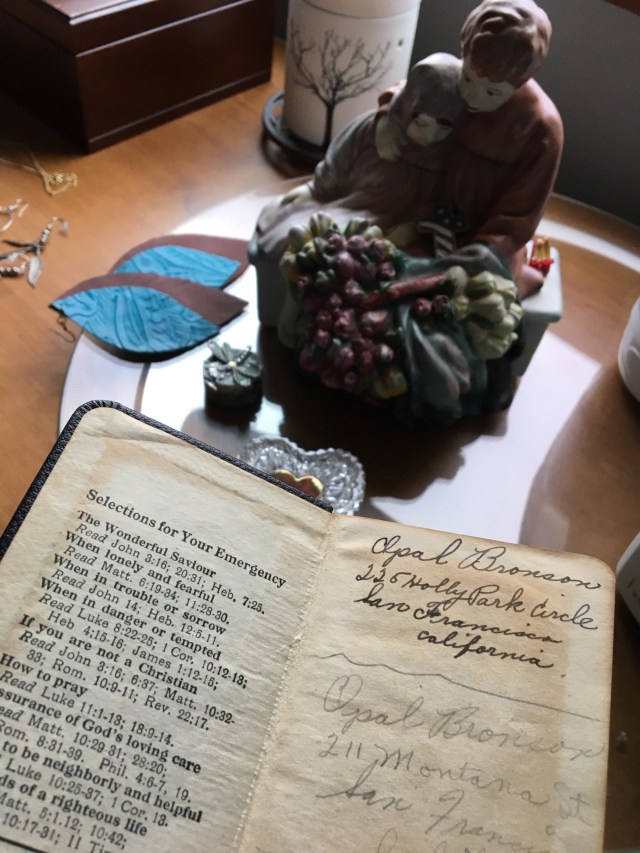 Selections for Your Emergency
The Wonderful Saviour
Read John 3:16; 20:31; Heb. 7:25.
When lonely and fearful
Read Matt. 6:19-34; 11:28-30.
When in trouble or sorrow
Read John 14; Heb. 12:5-11.
When in danger or tempted
Read Luke 8:22-25; 1 Cor. 10:12-13;
Heb 4:15-16; James 1:12-15;
If you are not a Christian
Read John 3:16; 6:37; Matt. 10:32-
33; Rom. 10:9-11; Rev. 22:17.
How to pray
Read Luke 11:1-13; 18:9-14.
ssurance of God's loving care
ead Matt. 10:29-31; 28:20;
Rom. 8:31-39. Phil. 4:6-7, 19.
to be neighborly and helpful
Luke 10:25-37; 1 Cor. 13.
ds of a righteous life
Matt. 5:1.12; 10:42;
10:17-31; 11
Opal Bronson
225 Holly Park Circle
San Francisco
California.
Opal Bronson
211 Montana St
San Franc